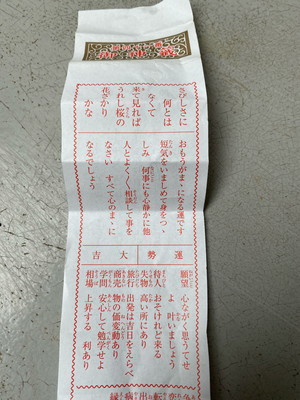 さびしさに
何とは
なくて
来て見れば
うれし桜の
花さかり
かな
おもうがまゝになる運です
短気をいましめて身をつゝ
しみ 何事にも心静かに他
人とよく〱相談して事を
なさい すべて心のまゝに
なるでしょう
運勢 大吉
願望 心ながく思うてせ
よ 叶いましょう
待人 おそけれど来る
失物 高い所にあり
旅行 出発は吉日をえらべ
商売 物の価変動あり
学問 安心して勉学せよ
相場 上昇する 利あり